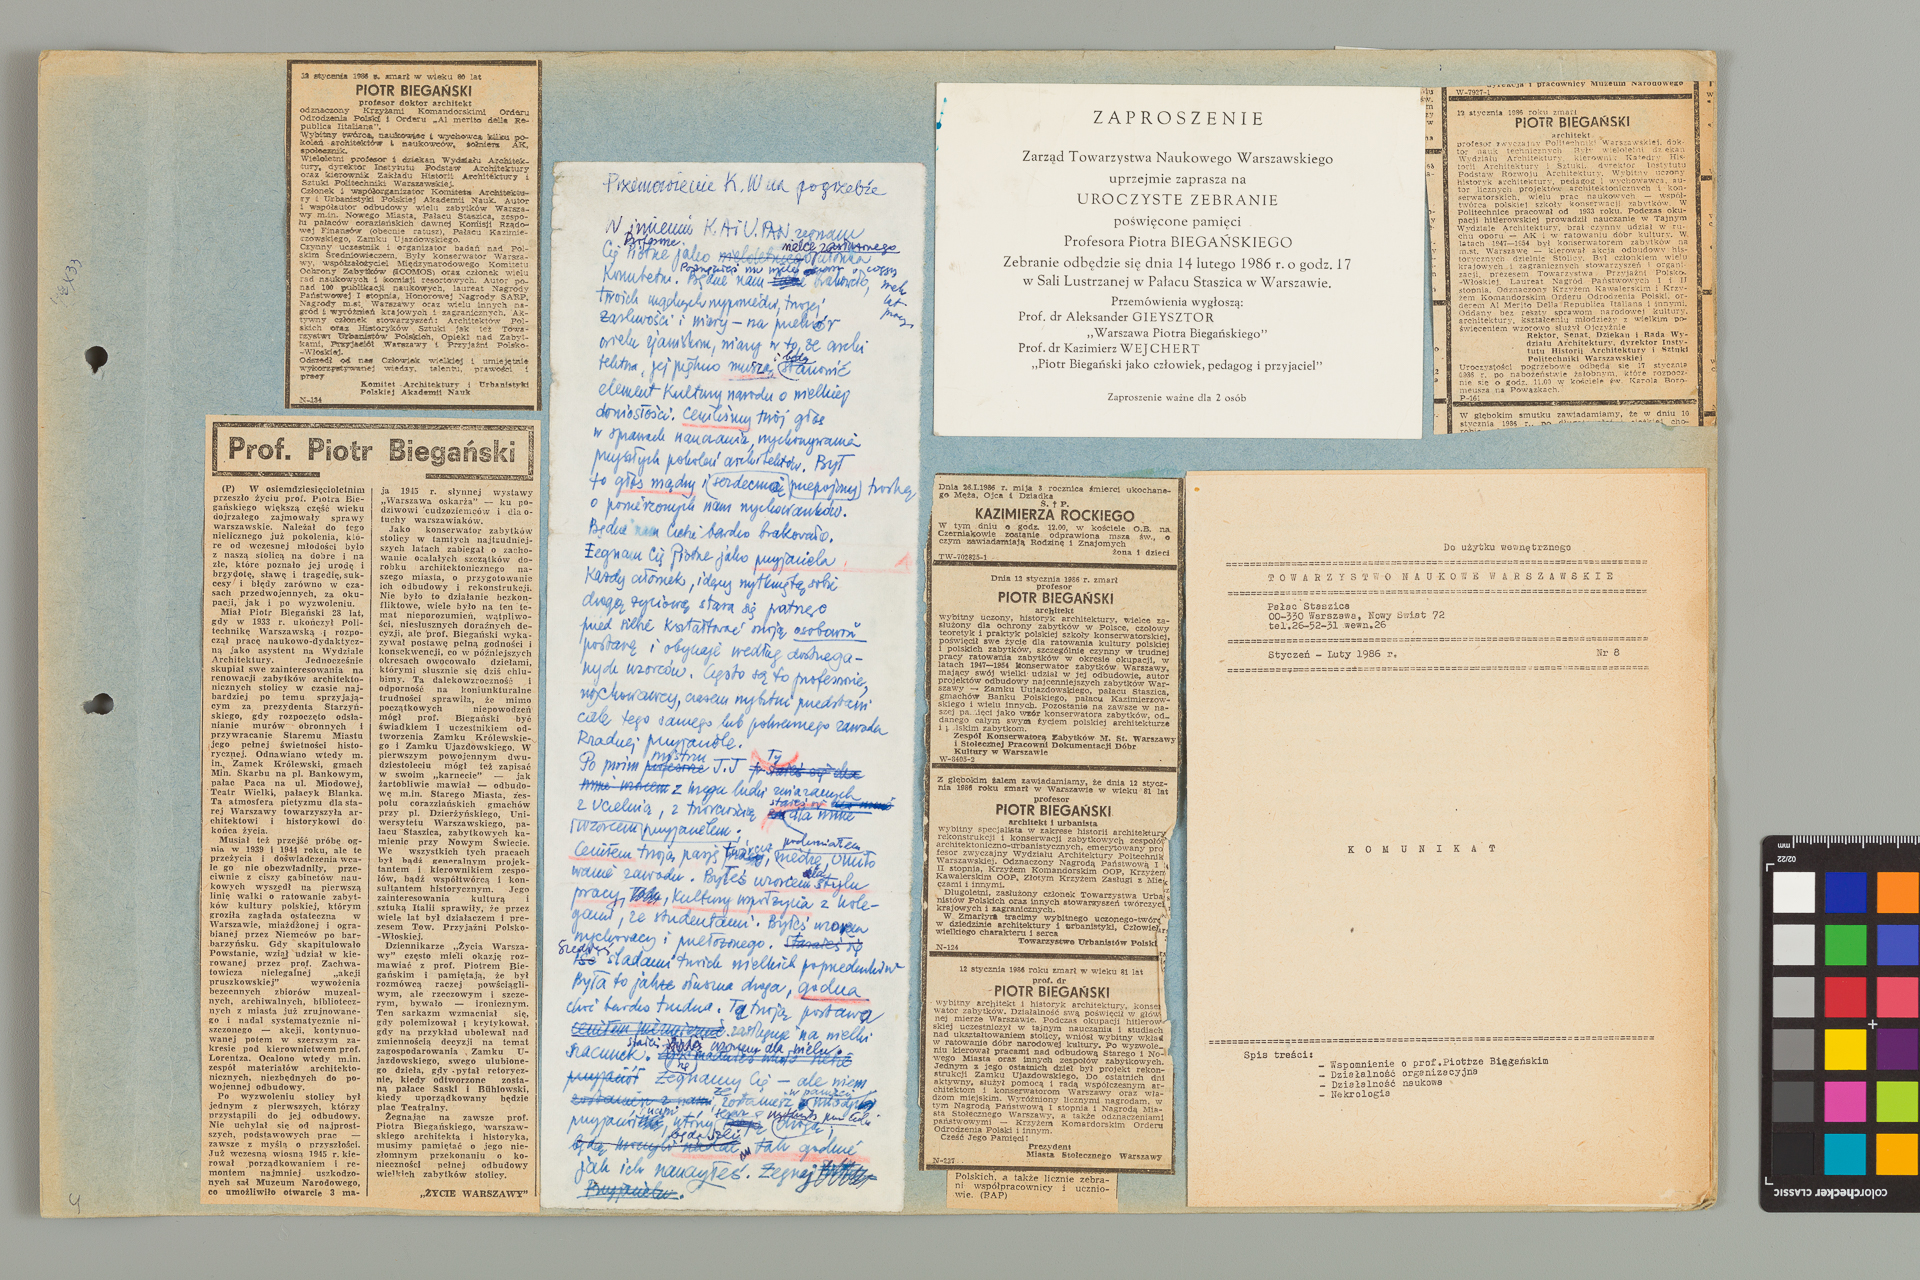 12 stycznia 1986 r. zmarł w wieku 80 lat
PIOTR BIEGAŃSKI
profesor doktor architekt
odznaczony Krzyżami Komandorskimi Orderu
Odrodzenia Polski i Orderu „Al merito della Re-
publica Iitaliana”.
Wybitny twórca, naukowiec i wychowca kilku po-
koleń architektów i naukowców, żołnierz AK,
społecznik.
Wieloletni profesor i dziekan Wydziału Architek-
tury, dyrektor Instytutu Podstaw Architektury
oraz kierownik Zakładu Historii Architektury i
Sztuki Politechniki Warszawskiej.
Członek i współorganizator Komitetu Architektu-
ry i Urbanistyki Polskiej Akademii Nauk. Autor
i współautor odbudowy wielu zabytków Warsza-
wy m.in. Nowego Miasta, Pałacu Staszica, zespo-
łu pałaców corazziańskich dawnej Komisji Rządo-
wej Finansów (obecnie ratusz), Pałacu Kazimie-
rzowskiego, Zamku Ujazdowskiego.
Czynny uczestnik i organizator badań nad Pol-
skim Średniowieczem. Były konserwator Warsza-
wy, współzałożyciel Międzynarodowego Komitetu
Ochrony Zabytków (ICOMOS) oraz członek wielu
rad naukowych i komisji resortowych. Autor po-
nad 100 publikacji naukowych, laureat Nagrody
Państwowej I stopnia, Honorowej Nagrody SARP,
Nagrody m.st. Warszawy oraz wielu innych na-
gród i wyróżnień krajowych i zagranicznych. Ak-
tywny członek stowarzyszeń: Architektów Pol-
skich oraz Historyków Sztuki jak też Towa-
rzystw: Urbanistów Polskich, Opieki nad Zabyt-
kami, Przyjaciół Warszawy i Przyjaźni Polsko-
-Włoskiej.
Odszedł od nas Człowiek wielkiej i umiejętnie
wykorzystywanej wiedzy, talentu, prawości i
pracy
Komitet Architektury i Urbanistyki
Polskiej Akademii Nauk
N-134
Prof. Piotr Biegański
(P) W osiemdziesięcioletnim
przeszło życiu prof. Piotra Bie-
gańskiego większą część wieku
dojrzałego zajmowały sprawy
warszawskie. Należał do tego
nielicznego już pokolenia, któ-
re od wczesnej młodości było
z naszą stolicą na dobre i na
złe, które poznało jej urodę i
brzydotę, sławę i tragedię, suk-
cesy i błędy zarówno w cza-
sach przedwojennych, za oku-
pacji, jak i po wyzwoleniu.
Miał Piotr Biegański 28 lat,
gdy w 1933 r. ukończył Poli-
technikę Warszawską i rozpo-
czął pracę naukowo-dydaktycz-
ną jako asystent na Wydziale
Architektury. Jednocześnie
skupiał swe zainteresowania na
renowacji zabytków architekto-
nicznych stolicy w czasie naj-
bardziej po temu sprzyjają-
cym za prezydenta Starzyń-
skiego, gdy rozpoczęto odsła-
nianie murów obronnych i
przywracanie Staremu Miastu
jego pełnej świetności histo-
rycznej. Odnawiano wtedy m.
in. Zamek Królewski, gmach
Min. Skarbu na pl. Bankowym,
pałac Paca na ul. Miodowej,
Teatr Wielki, pałacyk Blanka.
Ta atmosfera pietyzmu dla sta-
rej Warszawy towarzyszyła ar-
chitektowi i historykowi do
końca życia.
Musiał też przejść próbę og-
nia w 1939 i 1944 roku, ale te
przeżycia i doświadczenia wca-
le go nie obezwładniły, prze-
ciwnie z ciszy gabinetów nau-
kowych wyszedł na pierwszą
linię walki o ratowanie zabyt-
ków kultury polskiej, którym
groziła zagłada ostateczna w
Warszawie, miażdżonej i ogra-
bianej przez Niemców po bar-
barzyńsku. Gdy skapitulowało
Powstanie, wziął udział w kie-
rowanej przez prof. Zachwa-
towicza nielegalnej „akcji
pruszkowskiej” wywożenia
bezcennych zbiorów muzeal-
nych, archiwalnych, bibliotecz-
nych z miasta już zrujnowane-
go i nadal systematycznie ni-
szczonego — akcji, kontynuo-
wanej potem w szerszym za-
kresie pod kierownictwem prof.
Lorentza. Ocalono wtedy m.in.
zespół materiałów architekto-
nicznych, niezbędnych do po-
wojennej odbudowy.
Po wyzwoleniu stolicy był
jednym z pierwszych, którzy
przystąpili do jej odbudowy.
Nie uchylał się od najprost-
szych, podstawowych prac —
zawsze z myślą o przyszłości.
Już wczesną wiosną 1945 r. kie-
rował porządkowaniem i re-
montem najmniej uszkodzo-
nych sal Muzeum Narodowego,
co umożliwiło otwarcie 3 ma-
ja 1945 r. słynnej wystawy
„Warszawa oskarża” — ku po-
dziwowi cudzoziemców i dla o-
tuchy warszawiaków.
Jako konserwator zabytków
stolicy w tamtych najtrudniej-
szych latach zabiegał o zacho-
wanie ocalałych szczątków do-
robku architektonicznego na-
szego miasta, o przygotowanie
ich odbudowy i rekonstrukcji.
Nie było to działanie bezkon-
fliktowe, wiele było na ten te-
mat nieporozumień, wątpliwo-
ści, niesłusznych doraźnych de-
cyzji, ale prof. Biegański wyka-
zywał postawę pełną godności i
konsekwencji, co w późniejszych
okresach owocowało dziełami,
którymi słusznie się dziś chlu-
bimy. Ta dalekowzroczność i
odporność na koniunkturalne
trudności sprawiła, że mimo
początkowych niepowodzeń
mógł prof. Biegański być
świadkiem i uczestnikiem od-
tworzenia Zamku Królewskie-
go i Zamku Ujazdowskiego. W
pierwszym powojennym dwu-
dziestoleciu mógł też zapisać
w swoim „karnecie” — jak
żartobliwie mawiał — odbudo-
wę m.in. Starego Miasta, zes-
połu corazziańskich gmachów
przy pl. Dzierżyńskiego, Uni-
wersytetu Warszawskiego, pa-
łacu Staszica, zabytkowych ka-
mienic przy Nowym Świecie.
We wszystkich tych pracach
był bądź generalnym projek-
tantem i kierownikiem zespo-
łów, bądź współtwórcą i kon-
sultantem historycznym. Jego
zainteresowania kulturą i
sztuką Italii sprawiły, że przez
wiele lat był działaczem i pre-
zesem Tow. Przyjaźni Polsko-
-Włoskiej.
Dziennikarze „Życia Warsza-
wy” często mieli okazję roz-
mawiać z prof. Piotrem Bie-
gańskim i pamiętają, że był
rozmówcą raczej powściągli-
wym, ale rzeczowym i szcze-
rym, bywało — ironicznym.
Ten sarkazm wzmacniał się,
gdy polemizował i krytykował,
gdy na przykład ubolewał nad
zmiennością decyzji na temat
zagospodarowania Zamku U-
jazdowskiego, swego ulubione-
go dzieła, gdy pytał retorycz-
nie, kiedy odtworzone zosta-
ną pałace Saski i Bühlowski,
kiedy uporządkowany będzie
plac Teatralny.
Żegnając na zawsze prof.
Piotra Biegańskiego, warszaw-
skiego architekta i historyka,
musimy pamiętać o jego nie-
złomnym przekonaniu o ko-
nieczności pełnej odbudowy
wielkich zabytków stolicy.
„ŻYCIE WARSZAWY”
Przemówienie K.W na pogrzebie
W imieniu K.A i U.PAN żegnam
Cię Piotrze jako wielce zasłużonego członka
Komitetu. Będzie nam brakowało,
twoich mądrych wypowiedzi, twojej
żarliwości i wiary — na przekór
wielu zjawiskom, wiary w to, że archi
tektura, jej piękno muszą i będą stanowić
element Kultury narodu o wielkiej
doniosłości. Ceniliśmy twój głos
w sprawach nauczania, wychowywania
przyszłych pokoleń architektów. Był
to głos mądry i serdeczną przepojony troską
o powierzonych nam wychowanków.
Będzie nam Ciebie bardzo brakowało.
Żegnam Cię Piotrze jako przyjaciela.
Każdy człowiek, idący wytkniętą sobie
drogą życiową stara się patrząc
przed siebie kształtować swoją osobowość
postawę i obyczaje według dostrzega-
nych wzorców. Często są to profesorowie,
wychowawcy, czasem wybitni przedstawi
ciele tego samego lub pokrewnego zawodu
Rzadziej przyjaciele.
Po moim mistrzu T.T Ty
z kręgu ludzi związanych
z uczelnią, z twórczością stałeś się dla mnie
wzorcem przyjacielem.
Ceniłem twoją pasję twórczą, wiedzę, umiło
wanie zawodu. Byłeś wzorcem dla stylu
pracy, Kultury współżycia z kole-
gami, ze studentami. Byłeś wzorem
wychowawcy i przełożonego.
śladami twoich wielkich poprzedników
Była to jakże słuszna droga, godna
choć bardzo trudna. Tą twoją postawą
zasługuje na wielki
szacunek.
Żegnamy Cię — ale wiem
że zostaniesz w pamięci
tak godnie
jak ich nauczyłeś. Żegnaj
ZAPROSZENIE
Zarząd Towarzystwa Naukowego Warszawskiego
uprzejmie zaprasza na
UROCZYSTE ZEBRANIE
poświęcone pamięci
Profesora Piotra BIEGAŃSKIEGO
Zebranie odbędzie się dnia 14 lutego 1986 r. o godz. 17
w Sali Lustrzanej w Pałacu Staszica w Warszawie.
Przemówienia wygłoszą:
Prof. dr Aleksander GIEYSZTOR
„Warszawa Piotra Biegańskiego”
Prof. dr Kazimierz WEJCHERT
„Piotr Biegański jako człowiek, pedagog i przyjaciel”
Zaproszenie ważne dla 2 osób
i pracownicy Muzeum Narodowego
W-7927-1
12 stycznia 1986 roku zmarł
PIOTR BIEGAŃSKI
architekt
profesor zwyczajny Politechniki Warszawskiej, dok-
tor nauk technicznych. Były wieloletni dziekan
Wydziału Architektury, kierownik Katedry His-
torii Architektury i Sztuki, dyrektor Instytutu
Podstaw Rozwoju Architektury. Wybitny uczony
historyk architektury, pedagog i wychowawca, au-
tor licznych projektów architektonicznych i kon-
serwatorskich, wielu prac naukowych i współ-
twórca polskiej szkoły konserwacji zabytków. W
Politechnice pracował od 1933 roku. Podczas oku-
pacji hitlerowskiej prowadził nauczanie w Tajnym
Wydziale Architektury, brał czynny udział w ru-
chu oporu — AK i w ratowaniu dóbr kultury. W
latach 1947—1954 był konserwatorem zabytków na
m.st. Warszawę — kierował akcją odbudowy his-
torycznych dzielnic Stolicy. Był członkiem wielu
krajowych i zagranicznych stowarzyszeń i organi-
zacji, prezesem Towarzystwa Przyjaźni Polsko-
-Włoskiej. Laureat Nagród Państwowych I i II
stopnia. Odznaczony Krzyżem Kawalerskim i Krzy-
żem Komandorskim Orderu Odrodzenia Polski, or-
derem Al Merito Della Republica Italiana i innymi.
Oddany bez reszty sprawom narodowej kultury,
architektury, kształceniu młodzieży z wielkim po-
święceniem wzorowo służył Ojczyźnie
Rektor, Senat, Dziekan i Rada Wy-
działu Architektury, dyrektor Insty-
tutu Historii Architektury i Sztuki
Politechniki Warszawskiej
Uroczystości pogrzebowe odbędą się 17 stycznia
1986 r. po nabożeństwie żałobnym, które rozpocz-
nie się o godz. 11.00 w kościele św. Karola Boro-
meusza na Powązkach.
P-161
W głębokim smutku zawiadamiamy, że w dniu 10
Dnia 26.I.1986 r. mija 3 rocznica śmierci ukochane-
go Męża, Ojca i Dziadka
Ś. † P.
KAZIMIERZA ROCKIEGO
W tym dniu o godz. 12.00, w kościele O.B. na
Czerniakowie zostanie odprawiona msza św., o
czym zawiadamiają Rodzinę i Znajomych
żona i dzieci
TW-702825-1
Dnia 12 stycznia 1986 r. zmarł
profesor
PIOTR BIEGAŃSKI
architekt
wybitny uczony, historyk architektury, wielce za-
służony dla ochrony zabytków w Polsce, czołowy
teoretyk i praktyk polskiej szkoły konserwatorskiej,
poświęcił swe życie dla ratowania kultury polskiej
i polskich zabytków, szczególnie czynny w trudnej
pracy ratowania zabytków w okresie okupacji, w
latach 1947—1954 konserwator zabytków Warszawy,
mający swój wielki udział w jej odbudowie, autor
projektów odbudowy najcenniejszych zabytków War-
szawy — Zamku Uujazdowskiego, pałacu Staszica,
gmachów Banku Polskiego, pałacu Kazimierzow-
skiego i wielu innych. Pozostanie na zawsze w na-
szej pamięci jako wzór konserwatora zabytków, od-
danego całym swym życiem polskiej architekturze
i polskim zabytkom.
Zespół Konserwatora Zabytków M. St. Warszawy
i Stołecznej Pracowni Dokumentacji Dóbr
Kultury w Warszawie
W-8403-2
Z głębokim żalem zawiadamiamy, że dnia 12 stycz-
nia 1986 roku zmarł w Warszawie w wieku 81 lat
profesor
PIOTR BIEGAŃSKI
architekt i urbanista
wybitny specjalista w zakresie historii architektury
rekonstrukcji i konserwacji zabytkowych zespołów
architektoniczno-urbanistycznych, emerytowany pro-
fesor zwyczajny Wydziału Architektury Politechniki
Warszawskiej. Odznaczony Nagrodą Państwową I i
II stopnia, Krzyżem Komandorskim OOP, Krzyżem
Kawalerskim OOP, Złotym Krzyżem Zasługi z Mie-
czami i innymi.
Długoletni, zasłużony członek Towarzystwa Urba-
nistów Polskich oraz innych stowarzyszeń twórczych
krajowych i zagranicznych.
W Zmarłym tracimy wybitnego uczonego-twórcę
w dziedzinie architektury i urbanistyki, Człowieka
wielkiego charakteru i serca
Towarzystwo Urbanistów Polskich
N-124
12 stycznia 1986 roku zmarł w wieku 81 lat
prof. dr
PIOTR BIEGAŃSKI
wybitny architekt i historyk architektury, konser-
wator zabytków. Działalność swą poświęcił w głów-
nej mierze Warszawie. Podczas okupacji hitlerow-
skiej uczestniczył w tajnym nauczaniu i studiach
nad ukształtowaniem stolicy, wniósł wybitny wkład
w ratowanie dóbr narodowej kultury. Po wyzwole-
niu kierował pracami nad odbudową Starego i No-
wego Miasta oraz innych zespołów zabytkowych.
Jednym z jego ostatnich dzieł był projekt rekon-
strukcji Zamku Ujazdowskiego. Do ostatnich dni
aktywny, służył pomocą i radą współczesnym ar-
chitektom i konserwatorom Warszawy oraz wła-
dzom miejskim. Wyróżniony licznymi nagrodami, w
tym Nagrodą Państwową I stopnia i Nagrodą Mia-
sta Stołecznego Warszawy, a także odznaczeniami
państwowymi — Krzyżem Komandorskim Orderu
Odrodzenia Polski i innymi.
Cześć Jego Pamięci!
Prezydent
Miasta Stołecznego Warszawy
N-127
Polskich, a także licznie zebra-
ni współpracownicy i ucznio-
wie. (BAP)
Do użytku wewnętrznego
TOWARZYSTWO NAUKOWE WARSZAWSKIE
Pałac Staszica
00-330 Warszawa, Nowy Świat 72
tel.26-52-31 wewn.26
Styczeń - Luty 1986 r. Nr 8
KOMUNIKAT
Spis treści:
- Wspomnienie o prof.Piotrze Biegańskim
- Działalność organizacyjna
- Działalność naukowa
- Nekrologia
mm
colorchecker CLASSIC